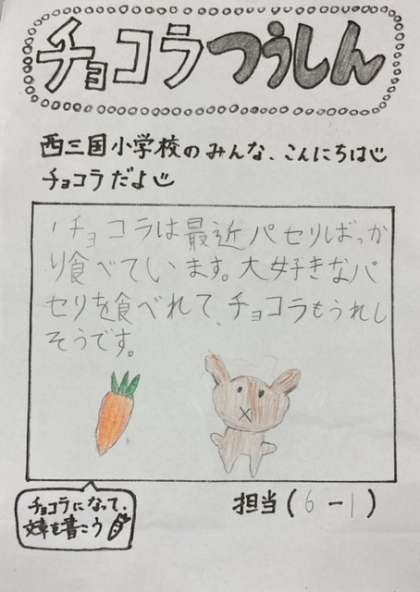 チョコラつうしん
西三国小学校のみんな、こんにちは
チョコラだよ
チョコラは最近パセリばっか
り食べています。大好きなパ
セリを食べれて、チョコラもうれし
そうです。
チョコラになって、
文章を書こう
担当(6-1)